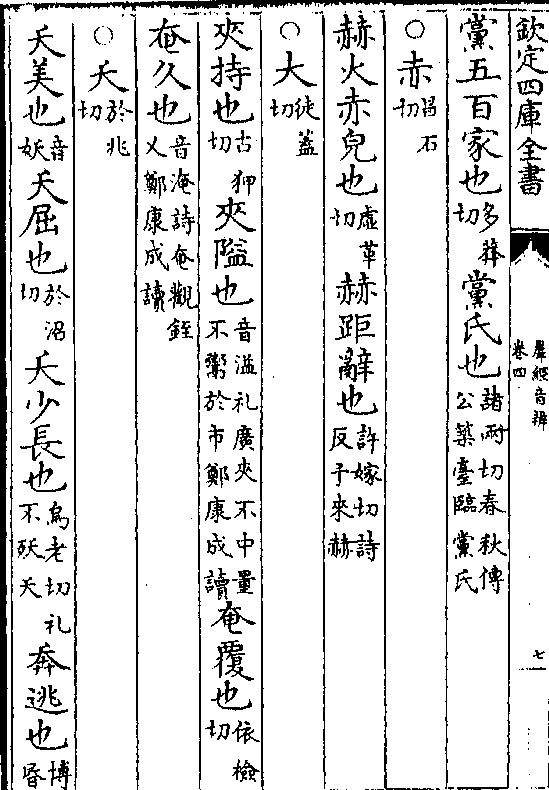 欽定四庫全書
羣經音辨
卷四
七
黨五百家也多莽切黨氏也諸兩切春秋傳公築臺臨黨氏
○赤昌石切
赫火赤皃也虛革切赫距辭也許嫁切詩反予來赫
○大徒蓋切
夾持也古狎切夾隘也音溢礼廣夾不中量不鬻於市鄭康成讀奄覆也依檢切
奄久也音淹詩奄觀銍乂鄭康成讀
○夭於兆切
夭美也音妖夭屈也於沼切夭少長也烏老切礼不殀夭奔逃也博昬